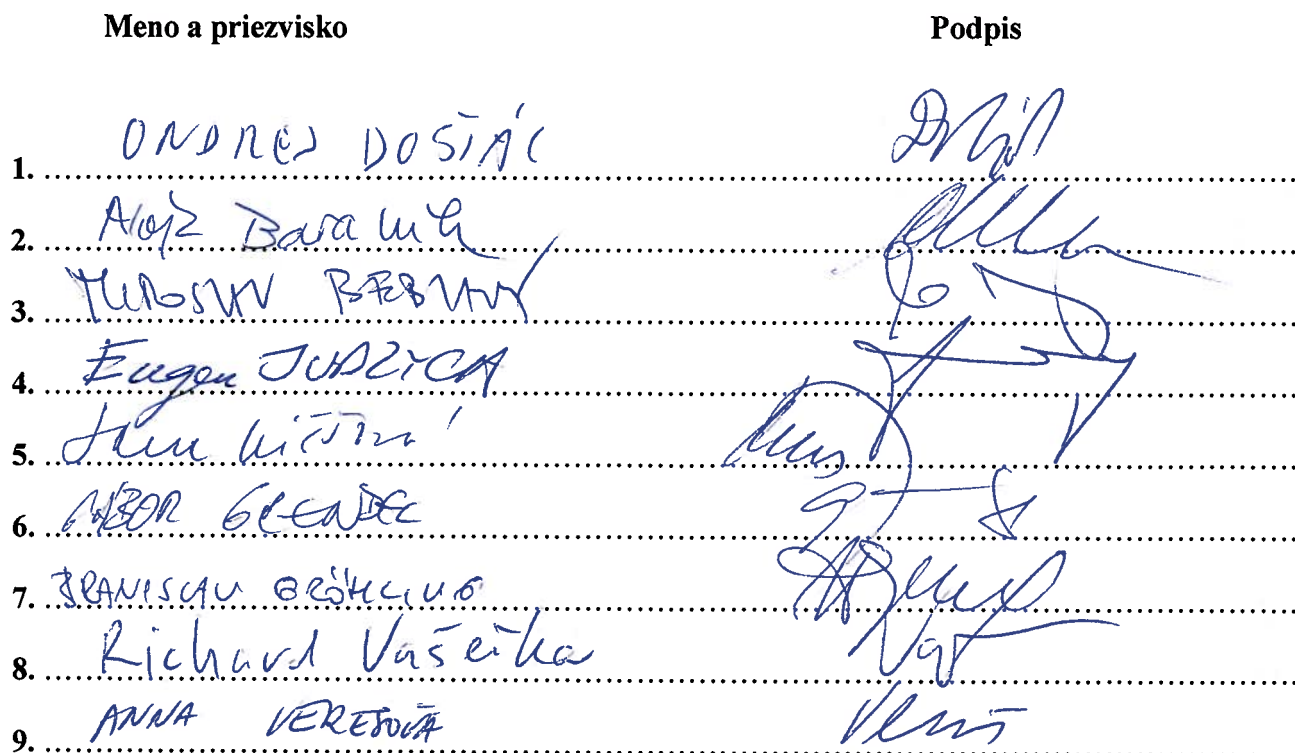 Meno a priezvisko Podpis
1. ONDREJ DOSTÁL
2. Alojz Baránik
3. MIROSLAV BEBLAVÝ
4. Eugen JURZYCA
5. Jana Kiššová
6. GÁBOR GRENDEL
7. BRANISLAV GRÖHLING
8. Richard Vašečka
9. ANNA VEREŠOVÁ